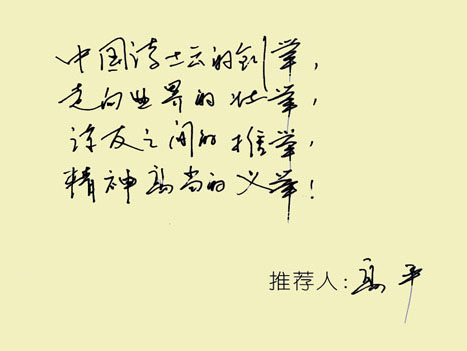 中国诗坛的创举,
走向世界的壮举,
诗友之间的推举,
精神高尚的义举!
推荐人:高平